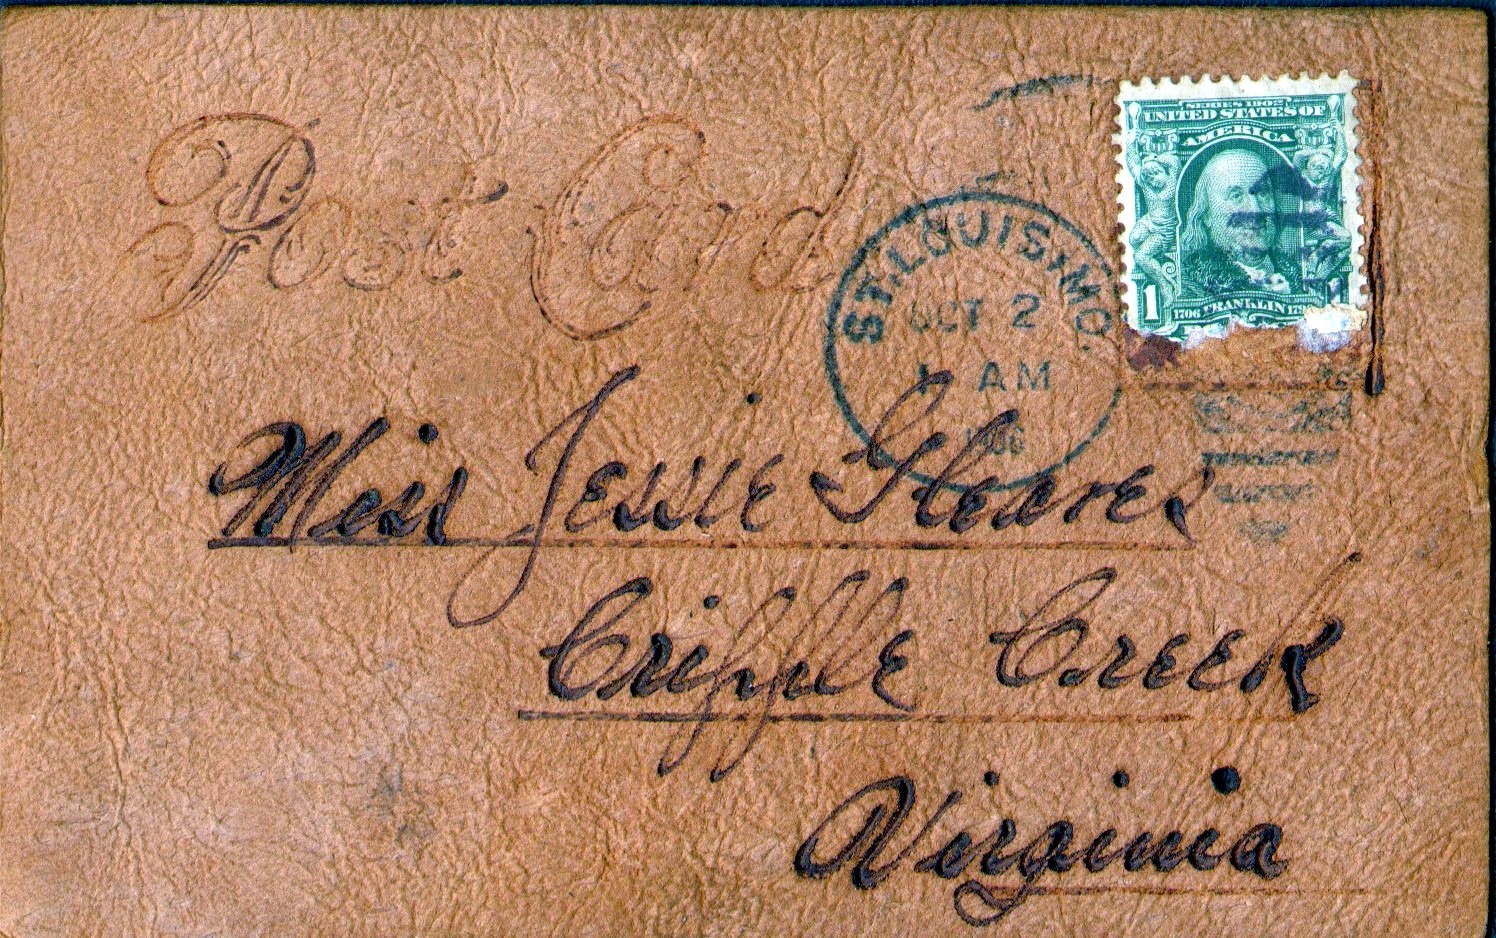 Post Card
SERIES 1902
UNITED STATES OF
AMERICA
1
FRANKLIN
1706
ST. LOUIS, MO.
OCT 2
1 AM
1906
Miss Jessie Gleaves
Cripple Creek
Virginia